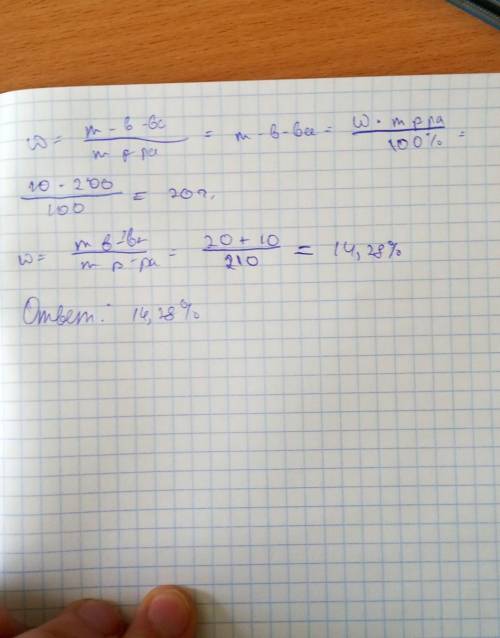 w = m - в - ва / m р ра = m - в - ва = w · m р ра / 100% =
10 · 200 / 100 = 20 г.
w = m в - ва / m р - ра = 20 + 10 / 210 = 14,28%
Ответ: 14,28%